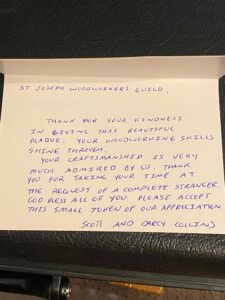 ST JOSEPH WOODWORKERS GUILD.
THANK FOR YOUR KINDNESS
IN GIVING THIS BEAUTIFUL
PLAQUE. YOUR WOODWORKING SKILLS
SHINE THROUGH.
YOUR CRAFTSMANSHIP IS VERY
MUCH ADMIRED BY US. THANK
YOU FOR TAKING YOUR TIME AT
THE REQUEST OF A COMPLETE STRANGER.
GOD BLESS ALL OF YOU. PLEASE ACCEPT
THIS SMALL TOKEN OF OUR APPRECIATION
SCOTT AND COLLINS